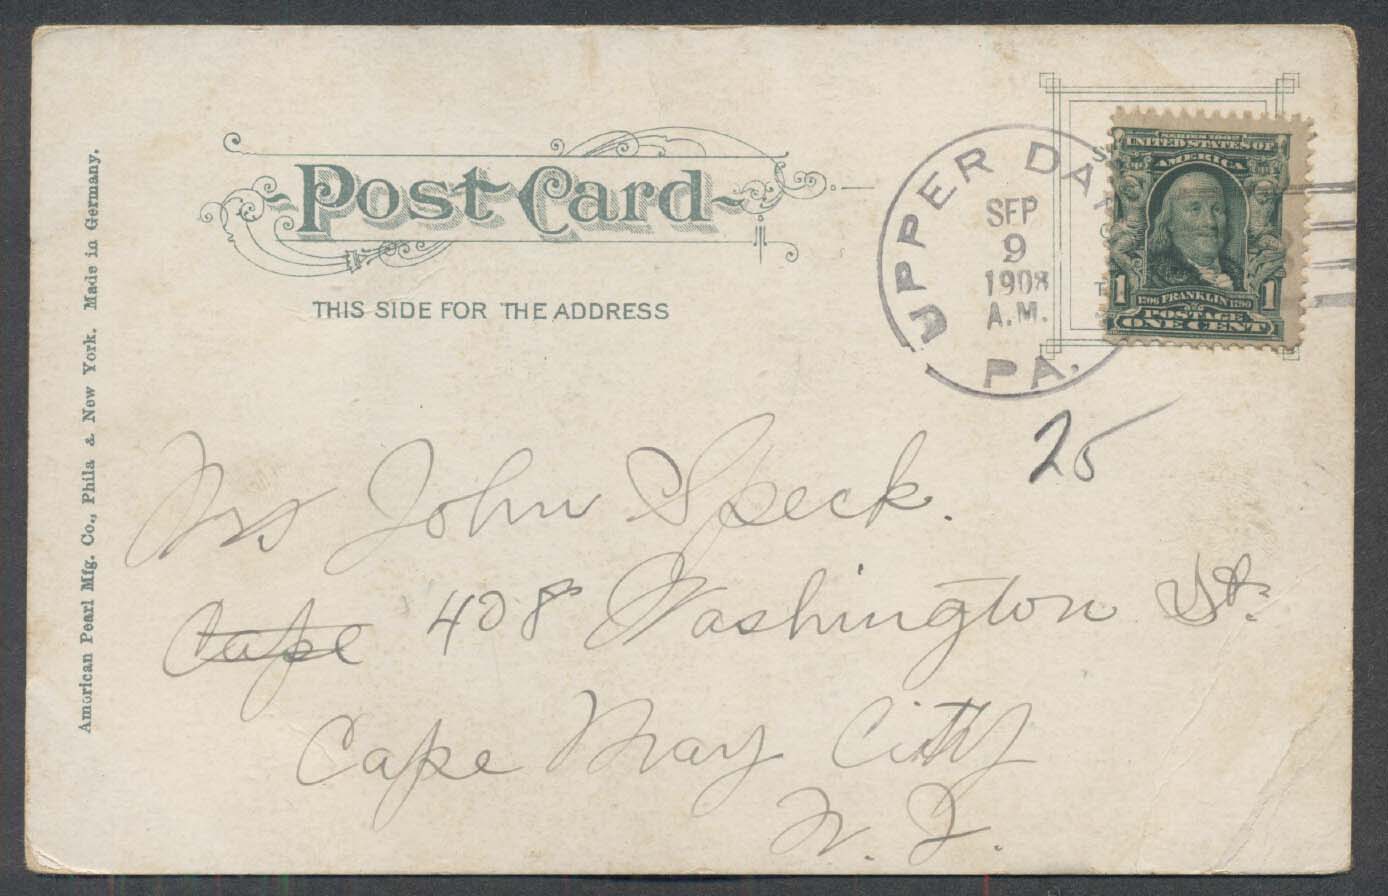 Post Card
THIS SIDE FOR THE ADDRESS
UPPER DA
SEP
9
1908
A.M.
PA.
SERIES 1902
UNITED STATES OF
AMERICA
1 1
1706 FRANKLIN 1790
POSTAGE
ONE CENT
25
Mrs John Speck.
Cape 408 Washington St.
Cape May City
N. J.
American Pearl Mfg. Co., Phila & New York. Made in Germany.